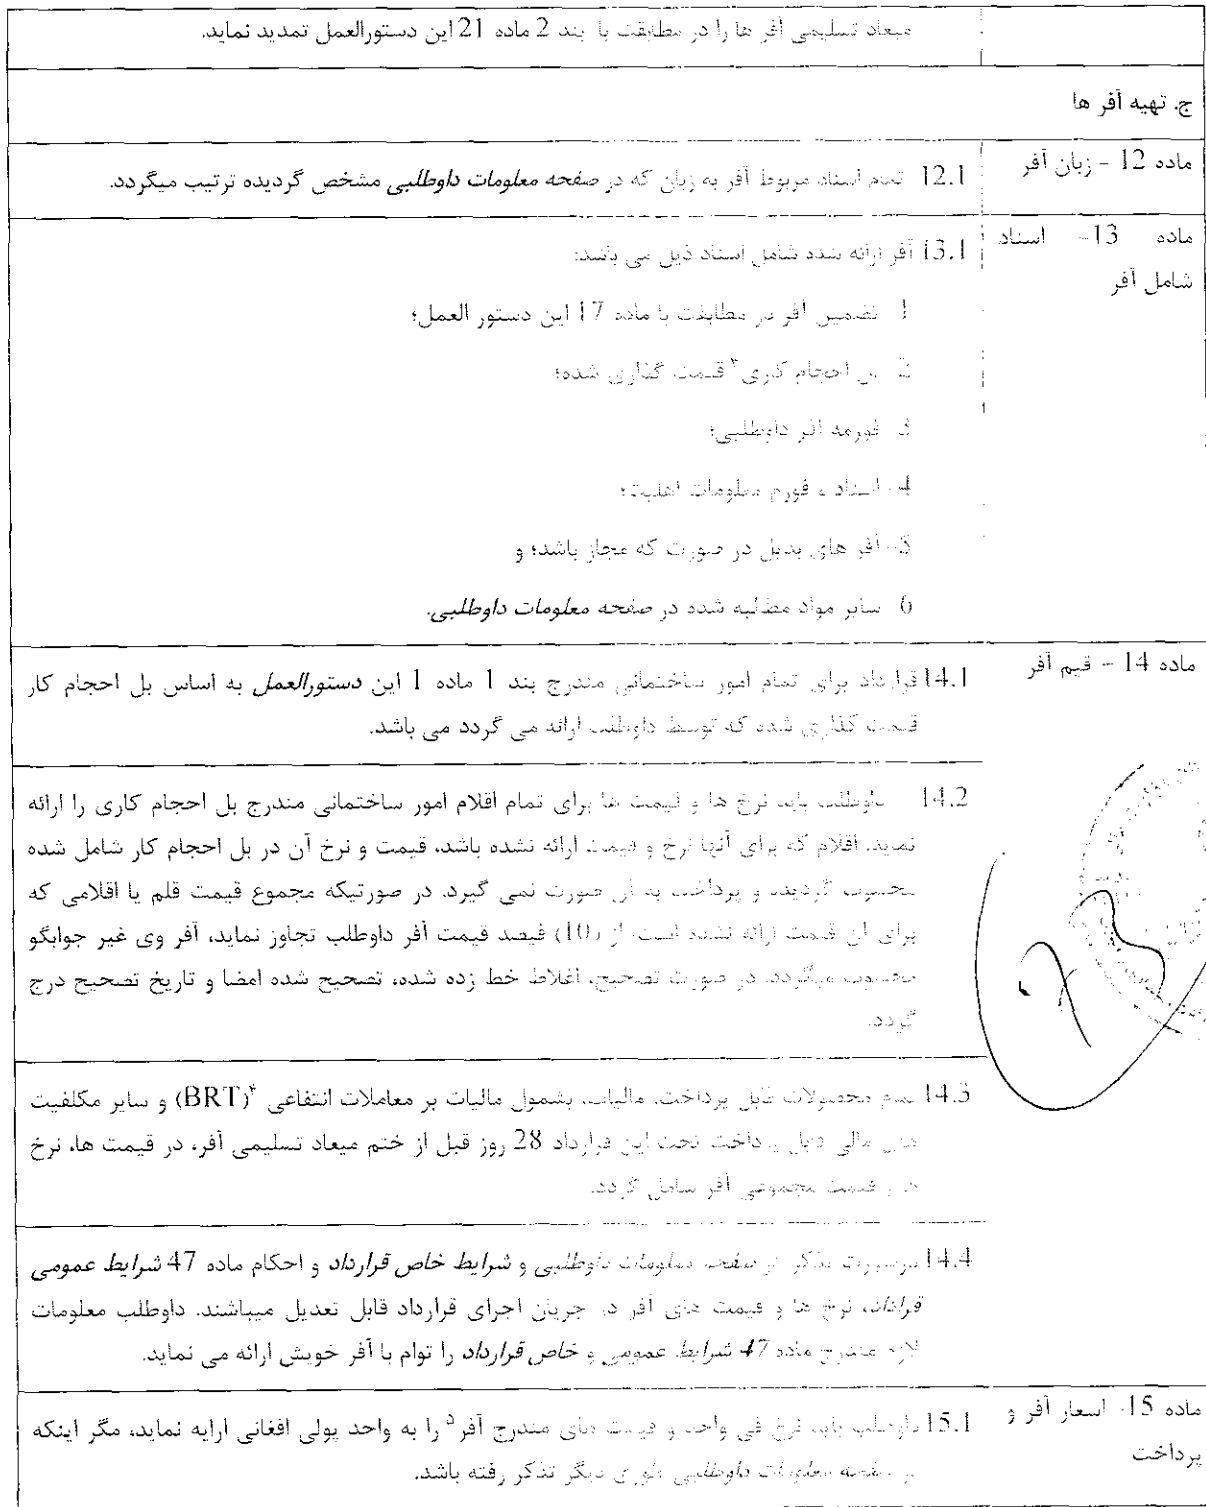 میعاد تسلیمی آفر ها را در مطابقت با بند 2 ماده 21 این دستورالعمل تمدید نماید.
ج. تهیه آفر ها
ماده 12 - زبان آفر
12.1 تمام اسناد مربوط آفر به زبان که در صفحه معلومات داوطلبی مشخص گردیده ترتیب میگردد.
ماده 13- اسناد
شامل آفر
13.1 آفر ارائه شده شامل اسناد ذیل می باشد:
1 تضمین آفر در مطابقت با ماده 17 این دستور العمل؛
2 بل احجام کاری۳ قیمت گذاری شده؛
3 فورمه آفر داوطلبی؛
4- اسناد و فورم معلومات اهلیت؛
5- آفر های بدیل در صورت که مجاز باشد؛ و
6 سایر مواد مطالبه شده در صفحه معلومات داوطلبی.
ماده 14 - قیم آفر
14.1 قرارداد برای تمام امور ساختمانی مندرج بند 1 ماده 1 این دستورالعمل به اساس بل احجام کار
قیمت گذاری شده که توسط داوطلب ارائه می گردد می باشد.
14.2 داوطلب باید نرخ ها و قیمت ها برای تمام اقلام امور ساختمانی مندرج بل احجام کاری را ارائه
نماید. اقلام که برای آنها نرخ و قیمت ارائه نشده باشد، قیمت و نرخ آن در بل احجام کار شامل شده
محسوب گردیده و پرداخت به آن صورت نمی گیرد. در صورتیکه مجموع قیمت قلم یا اقلامی که
برای آن قیمت ارائه نشده است از (10) فیصد قیمت آفر داوطلب تجاوز نماید، آفر وی غیر جوابگو
محسوب میگردد. در صورت تصحیح، اغلاط خط زده شده، تصحیح شده امضا و تاریخ تصحیح درج
گردد.
14.3 تمام محصولات قابل پرداخت، مالیات، بشمول مالیات بر معاملات انتفاعی ۴(BRT) و سایر مکلفیت
های مالی قابل پرداخت تحت این قرارداد 28 روز قبل از ختم میعاد تسلیمی آفر، در قیمت ها، نرخ
ها و قیمت مجموعی آفر شامل گردد.
14.4 درصورت تذکر در صفحه معلومات داوطلبی و شرایط خاص قرارداد و احکام ماده 47 شرایط عمومی
قرارداد، نرخ ها و قیمت های آفر در جریان اجرای قرارداد قابل تعدیل میباشند. داوطلب معلومات
لازم مندرج ماده 47 شرایط عمومی و خاص قرارداد را توام با آفر خویش ارائه می نماید.
ماده 15. اسعار آفر و
پرداخت
15.1 داوطلب باید نرخ فی واحد و قیمت های مندرج آفر۵ را به واحد پولی افغانی ارایه نماید، مگر اینکه
در صفحه معلومات داوطلبی طوری دیگر تذکر رفته باشد.